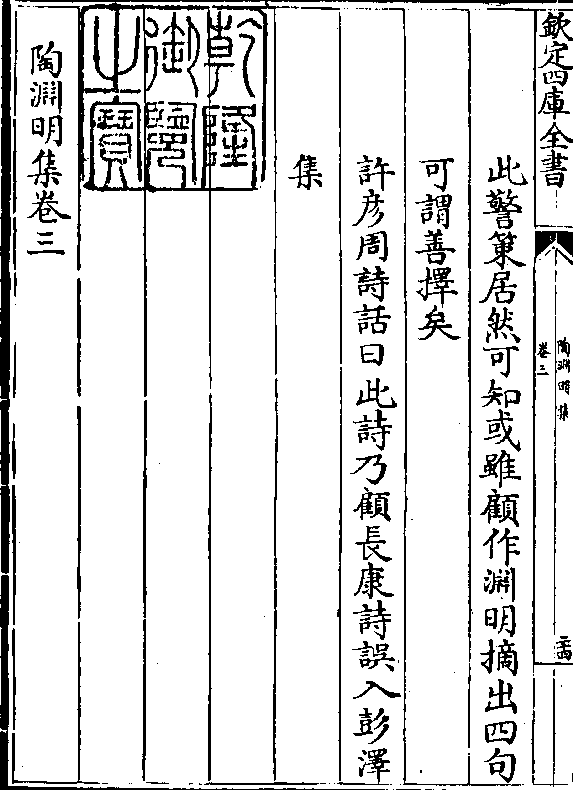 欽定四庫全書
陶淵明集
卷三
二十四
此警策居然可知或雖顧作淵明摘出四句
可謂善擇矣
許彦周詩話曰此詩乃顧長康詩誤入彭澤
集
乾隆
御覽
之寶
陶淵明集卷三